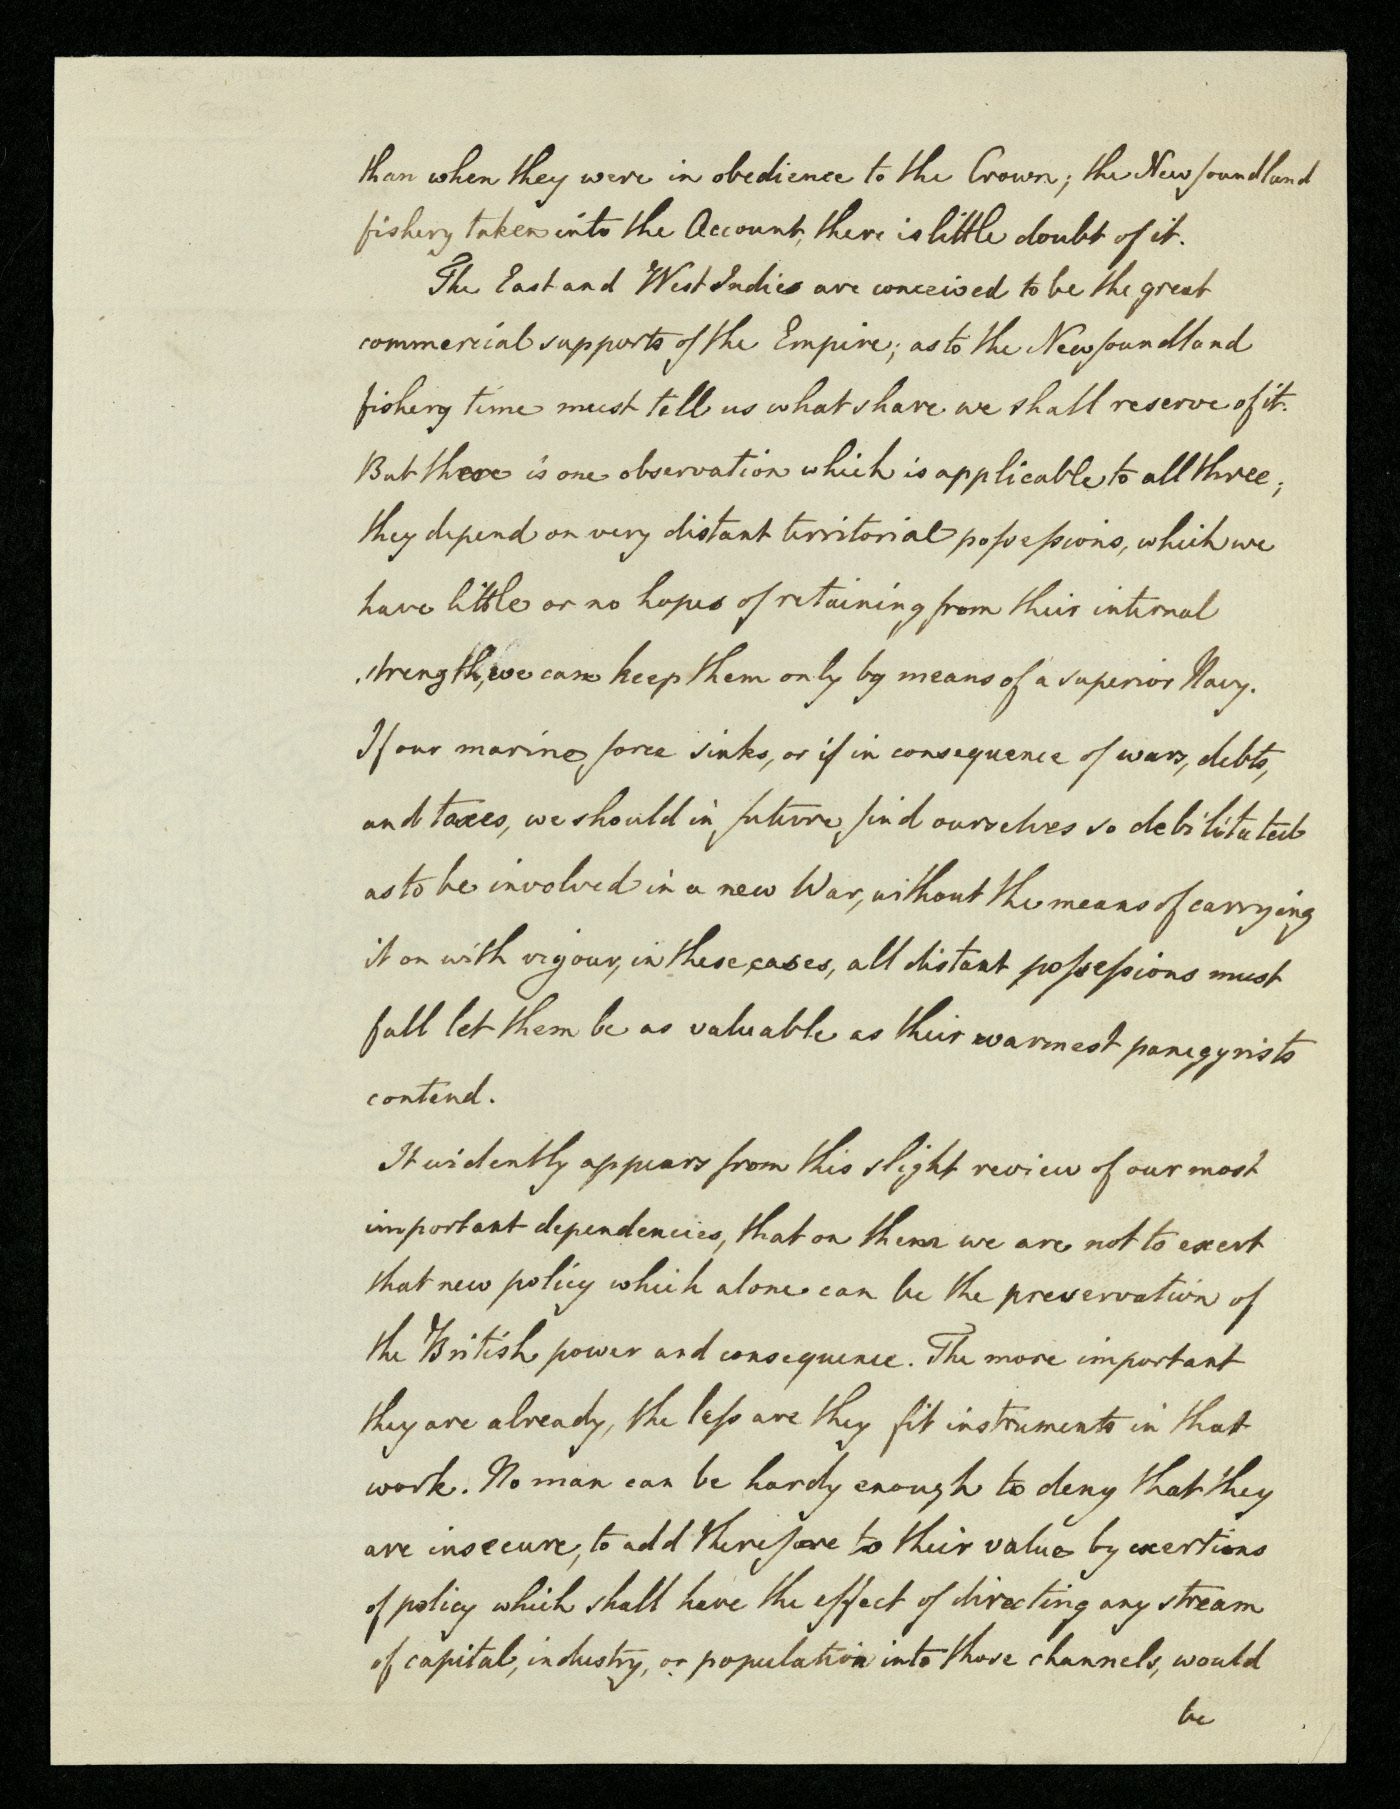 than when they were in obedience to the Crown; the Newfoundland
fishery taken into the Account, there is little doubt of it.
The East and West Indies are conceived to be the great
commercial supports of the Empire; as to the Newfoundland
fishery time must tell us what share we shall reserve of it.
But there is one observation which is applicable to all three;
they depend on very distant territorial poſseſsions, which we
have little or no hopes of retaining from their internal
strength, we can keep them only by means of a superior Navy.
If our marine force sinks, or if in consequence of wars, debts,
and taxes, we should in future find ourselves so debilitated
as to be involved in a new War, without the means of carrying
it on with vigour, in these cases, all distant poſseſsions must
fall let them be as valuable as their warmest panegyrists
contend.
It evidently appears from this slight review of our most
important dependencies, that on them we are not to exert
that new policy which alone can be the preservation of
the British power and consequence. The more important
they are already, the leſs are they fit instruments in that
work. No man can be hardy enough to deny that they
are insecure, to add therefore to their value by exertions
of policy which shall have the effect of directing any stream
of capital, industry, or population into those channels, would
be